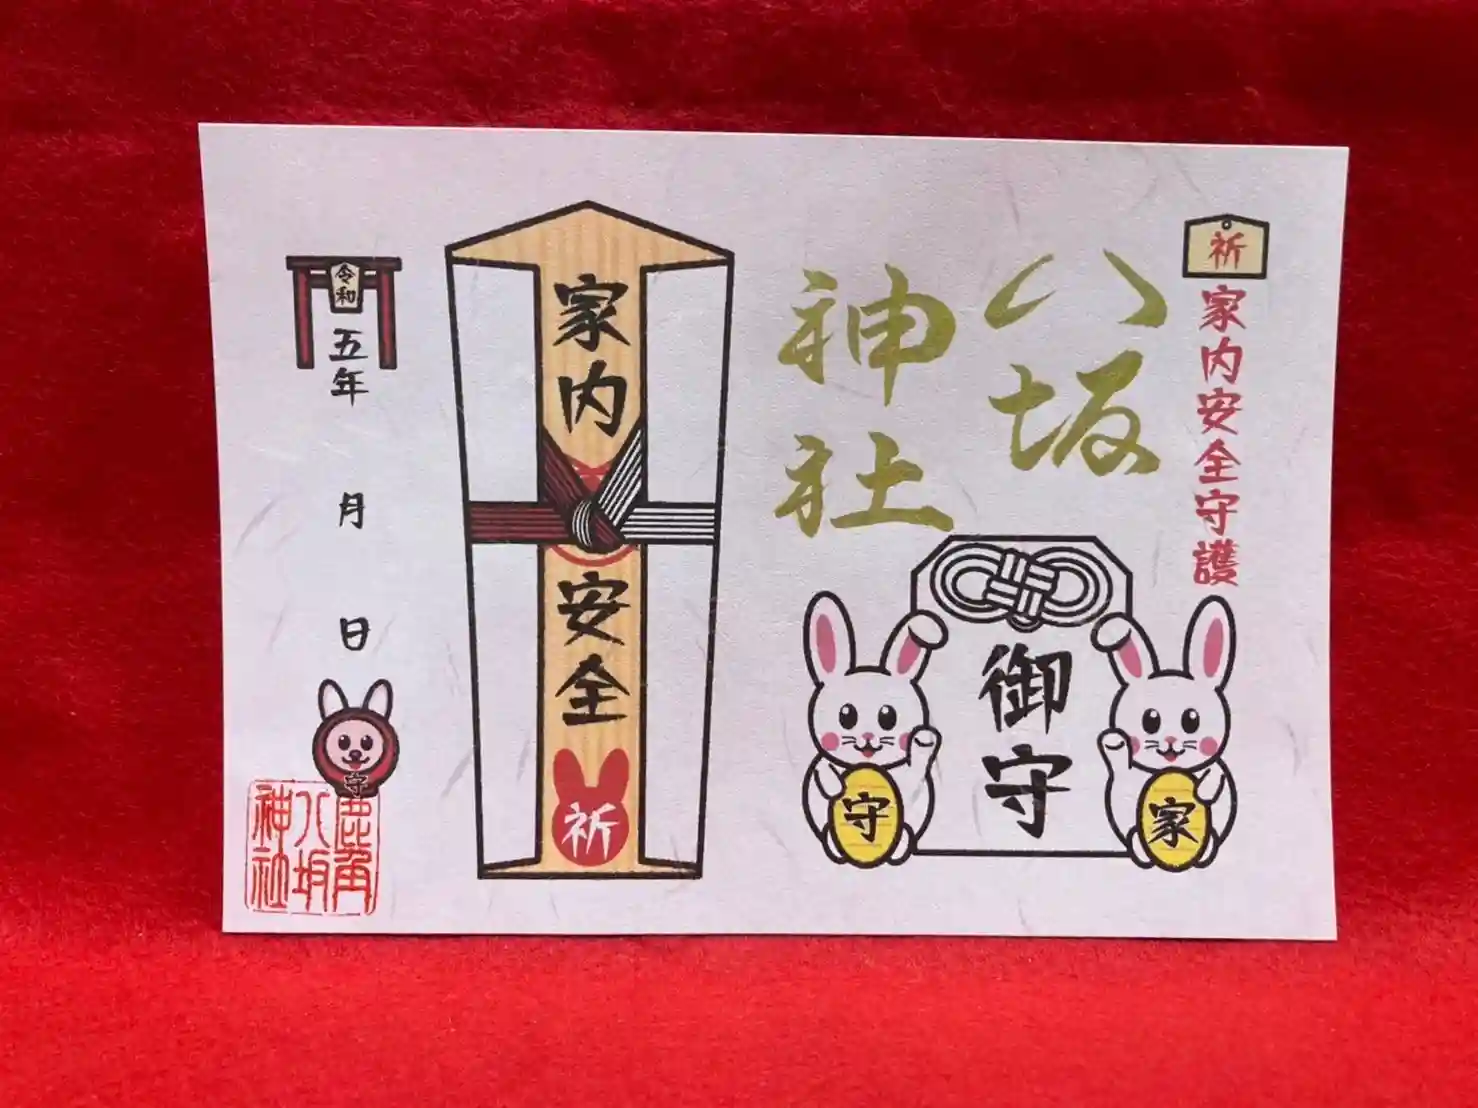 祈
家内安全守護
八坂
神社
御守
家
守
家内安全
祈
令和
五年
月
日
守
鹿角
八坂
神社